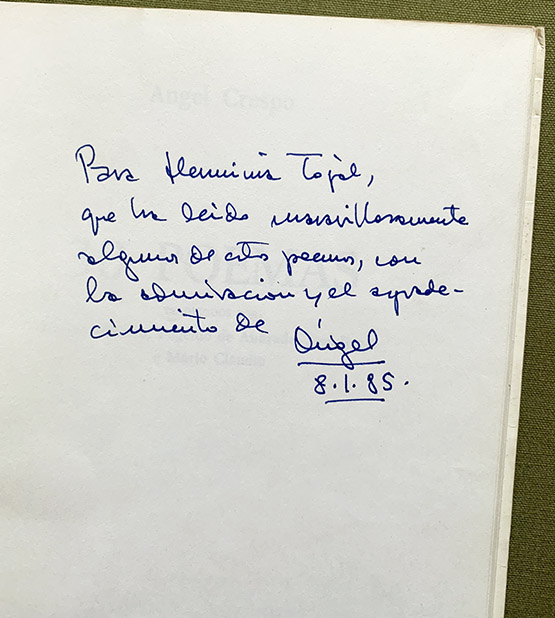 Angel Crespo
Para Herminia Tojal,
que ha leído maravillosamente
algunos de estos poemas, con
la admiración y el agrade-
cimiento de Ángel
8.1.85.
POEMAS